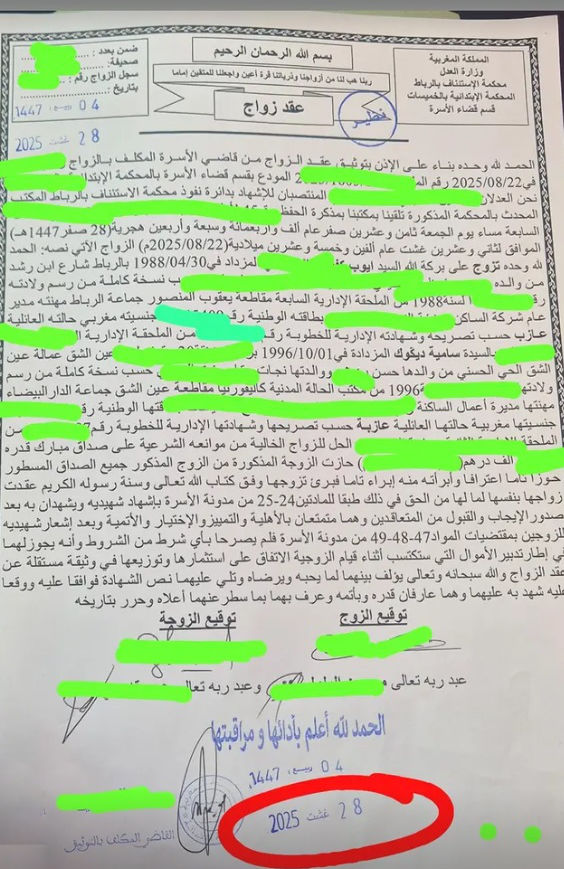 بسم الله الرحمان الرحيم
ربنا هب لنا من أزواجنا وذرياتنا قرة أعين واجعلنا للمتقين إماما
عقد زواج
المملكة المغربية
وزارة العدل
محكمة الإستئناف بالرباط
المحكمة الإبتدائية بالخميسات
قسم قضاء الأسرة
ضمن بعدد :
صحيفة:
سجل الزواج رقم :
بتاريخ :
04 1447
28 غشت 2025
الحمد لله وحده بناء على الإذن بتوثيق عقد الزواج من قاضي الأسرة المكلف بالزواج
في2025/08/22 رقم المودع بقسم قضاء الأسرة بالمحكمة
نحن العدلان المنتصبان للإشهاد بدائرة نفوذ محكمة الاستئناف بالرباط المكتب
المحدث بالمحكمة المذكورة تلقينا بمكتبنا بمذكرة الحفظ
السابعة مساء يوم الجمعة ثامن وعشرين صفر عام ألف وأربعمائة وسبعة وأربعين هجرية(28 صفر1447هـ)
الموافق لثاني وعشرين غشت عام ألفين وخمسة وعشرين ميلادية(2025/08/22م) الزواج الآتي نصه: الحمد
لله وحده تزوج على بركة الله السيد المزداد في1988/04/30 بالرباط شارع ابن رشد
من والده حسب نسخة كاملة من رسم ولادته
لسنة1988 من الملحقة الإدارية السابعة مقاطعة يعقوب المنصور جماعة الرباط مهنته مدير
عام شركة الساكن بطاقته الوطنية رقم جنسيته مغربي حالته العائلية
عازب حسب تصريحه وشهادته الإدارية للخطوبة من الملحقة الإدارية
بالسيدة سامية المزدادة في1996/10/01 عين الشق عمالة عين
الشق الحي الحسني من والدها حسن ووالدتها نجات حسب نسخة كاملة من رسم
ولادتها 1996 من مكتب الحالة المدنية كاليفورنيا مقاطعة عين الشق جماعة الدار البيضاء
مهنتها مديرة أعمال الساكنة الوطنية
جنسيتها مغربية حالتها العائلية عازبة حسب تصريحها وشهادتها الإدارية للخطوبة رقم من
الملحقة الحل للزواج الخالية من موانعه الشرعية على صداق مبارك قدره
ألف درهم حازت الزوجة المذكورة من الزوج المذكور جميع الصداق المسطور
حوزا تاما اعترافا وأبرأته منه إبراء تاما فبرئ تزوجها وفق كتاب الله تعالى وسنة رسوله الكريم عقدت
زواجها بنفسها لما لها من الحق في ذلك طبقا للمادتين24-25 من مدونة الأسرة بإشهاد شهيديه ويشهدان به بعد
صدور الإيجاب والقبول من المتعاقدين وهما متمتعان بالأهلية والتمييز والإختيار والأتمية وبعد إشعار شهيديه
للزوجين بمقتضيات المواد47-48-49 من مدونة الأسرة فلم يصرحا بأي شرط من الشروط وأنه يجوز لهما
في إطار تدبير الأموال التي ستكتسب أثناء قيام الزوجية الاتفاق على استثمارها وتوزيعها في وثيقة مستقلة عن
عقد الزواج والله سبحانه وتعالى يؤلف بينهما لما يحبه ويرضاه وتلي عليهما نص الشهادة فوافقا عليه ووقعا
عليه شهد به عليهما وهما عارفان قدره وبأتمه وعرف بهما بما سطر عنهما أعلاه وحرر بتاريخه
توقيع الزوج
توقيع الزوجة
عبد ربه تعالى
وعبد ربه تعالى
الحمد لله أعلم بأدائها و مراقبتها
04 1447
28 غشت 2025
القاضي المكلف بالتوثيق